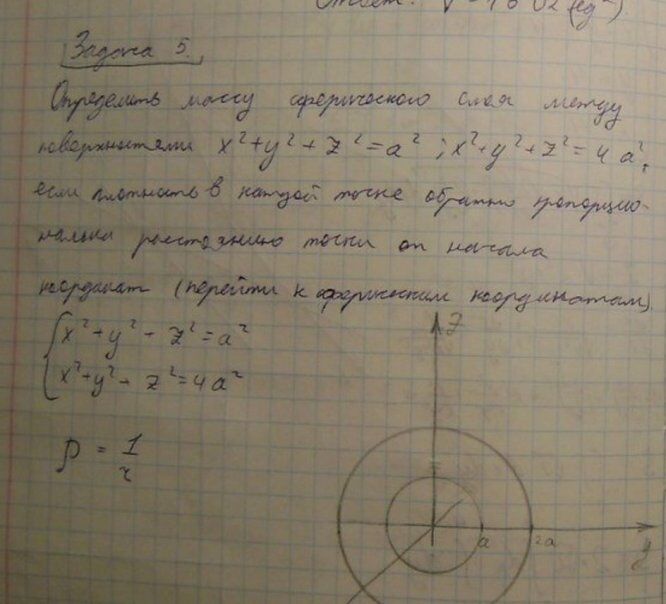 Ответ:
Задача 5.
Определить массу сферического слоя между
поверхностями x²+y²+z²=a²; x²+y²+z²=4a²,
если плотность в каждой точке обратно пропорцио-
нальна расстоянию точки от начала
координат (перейти к сферическим координатам).
x²+y²+z²=a²
x²+y²+z²=4a²
ρ = 1/r
z
a 2a
y